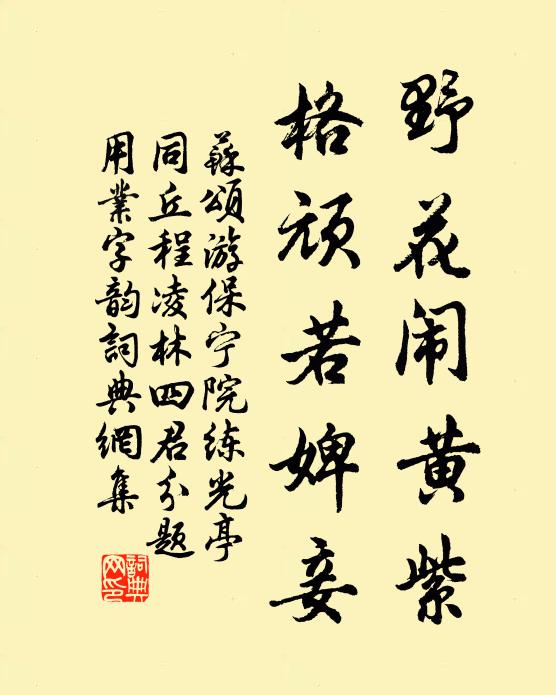 野花闹黄紫
格顽若婢妾
蘇頌游保宁院练光亭
同丘程凌林四君分题
用業字韵詞典網集
詞典网印